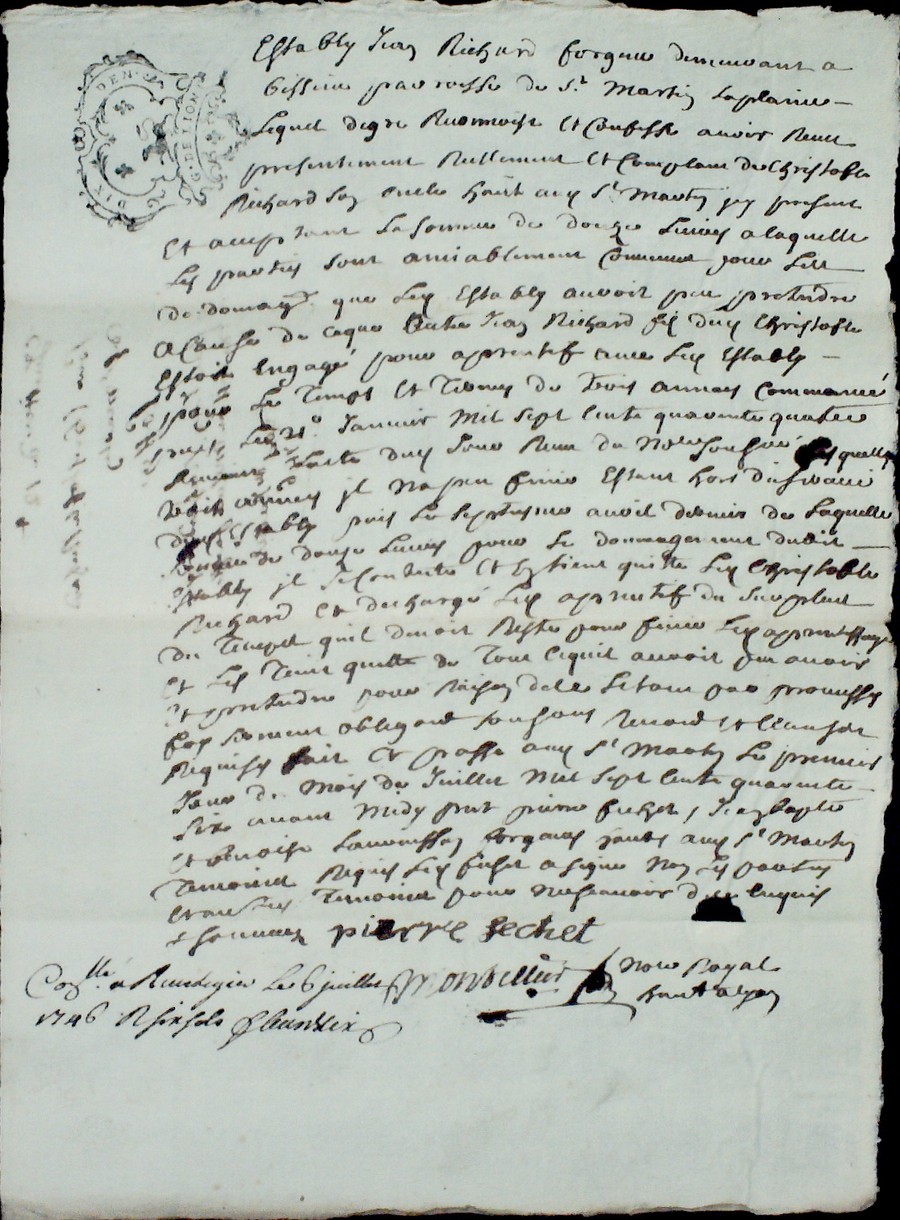 DIX DEN.
G. DE LION
Establÿ Jean Richard forgeur demeurant a
bissieu parroisse de St Martin Laplaine
Lequel degre Reconnoist Et Confesse avoir Receu
presentement Reellement Et Comptant de Christofle
Richard son oncle hait aud St Martin jcy present
Et acceptant La somme de douze Livres a laquelle
Les parties sont amiablement Convenue pour Les
dedomagt que Led Establÿ auroit peu pretendre
a Cause de ceque Jean Richard fils dud Christofle
Estoit Engagé pour aprentif avec Led Establÿ
pour Le Temps Et Termes de Trois années Commancé
Janvier Mil sept Cents quarente quatre
Lacte dud jour Receu du Nore soussigné Lesquelles
trois années jl na peu finir Estant hors du service
dud Establÿ puis Le septiesme avril dernier de Laquelle
somme de douze Livres pour Le dommagement dudit
Establÿ jl se Contente Et Entient quitte Led Christofle
Richard Et decharge Led aprentif du surplus
du Temps quil devoit Rester pour finir Led aprentissage
Et Les Tient quitte de Tout cequil auroit peu avoir
Et pretendre pour Raison de ce par promesses
foy serment obligaon soumons Renons Et Clauses
Requises fait Et passé aud St Martin Le premier
Jour du Mois de Juillet Mil sept Cents quarente
six avant Midy pnt pierre fechet, Jean
Et benoist forgeurs hants aud St Martin
Temoins Requis Led fechet a signé Non Les parties
Temoins pour ne scavoir de ce Enquis
Et sommez pierre fechet
Conllé a Rivedegier Le 6 juillet
Nore Royal
1746 R six sols